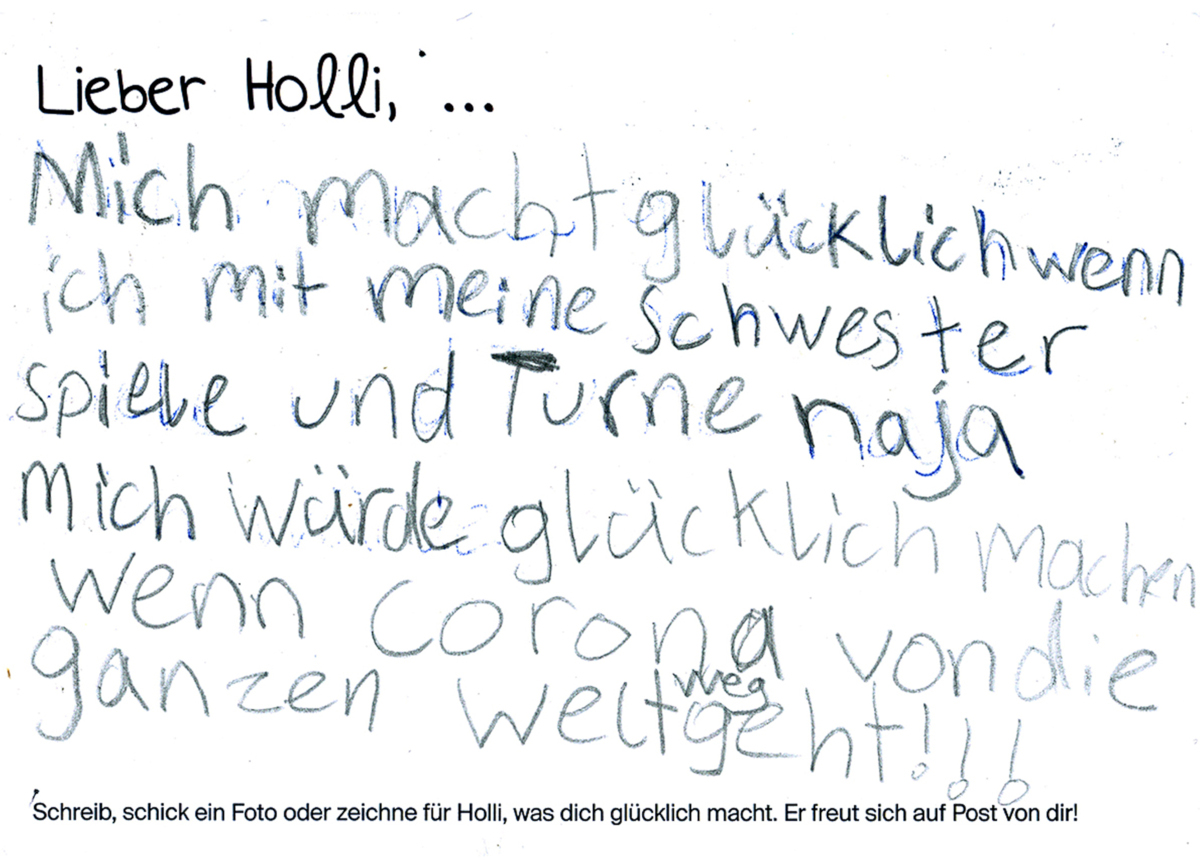 Lieber Holli, ...
Mich macht glücklich wenn
ich mit meine schwester
spiele und Turne naja
Mich würde glücklich machen
wenn corona von die
ganzen welt weg geht!!!
Schreib, schick ein Foto oder zeichne für Holli, was dich glücklich macht. Er freut sich auf Post von dir!